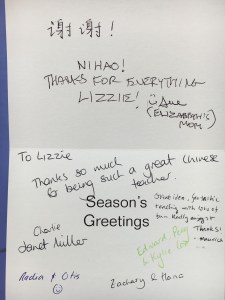 谢谢!
NIHAO!
THANKS FOR EVERYTHING
LIZZIE!
(ELIZABETH'S
MOM)
To Lizzie
Thanks so much
for being such a great Chinese
teacher.
Season's
Greetings
Great idea, fantastic
teaching with lots of
fun. Really enjoyed
Thanks!
- Maurice
Charlie
Janet Miller
Edward
& Kylie
& Otis
Zachary & Hana